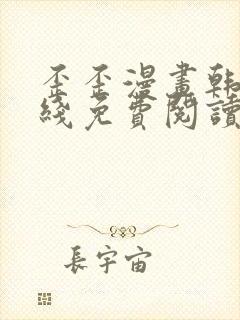 歪歪漫畫韩
綫免費閱讀
長宇宙